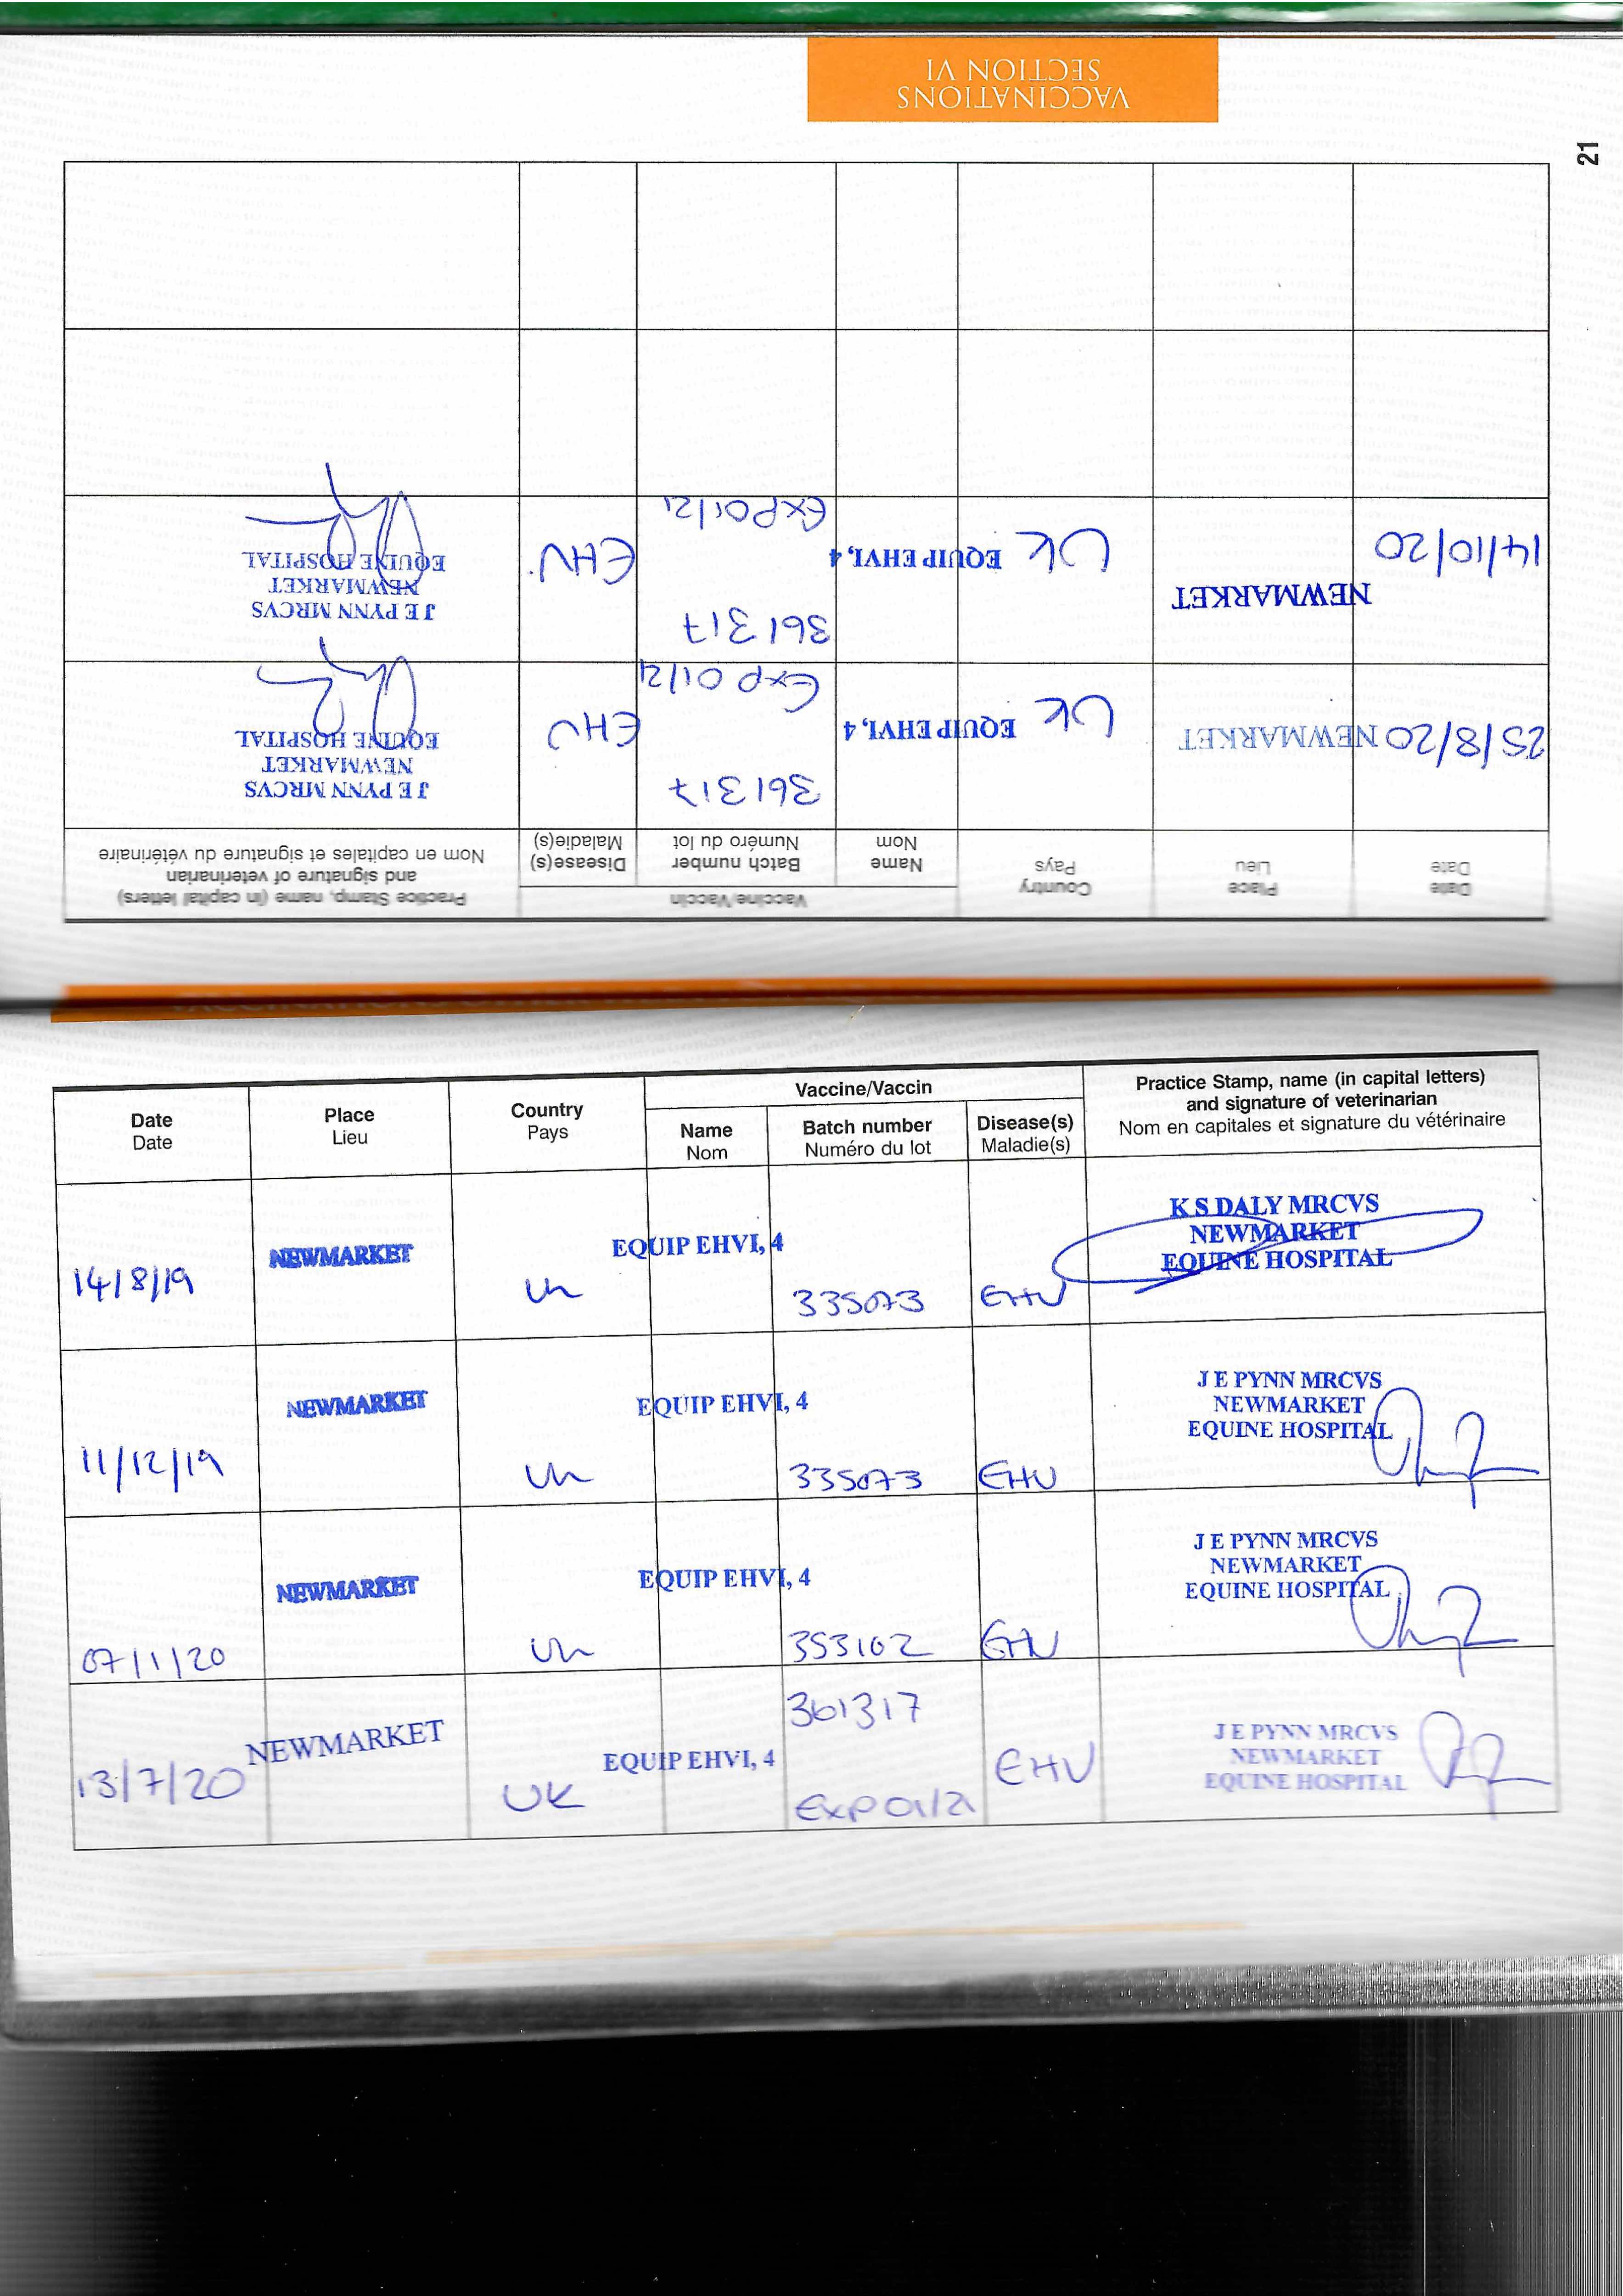 VACCINATIONS
SECTION VI
21
Date
Date
Place
Lieu
Country
Pays
Vaccine/Vaccin
Name
Nom
Batch number
Numéro du lot
Disease(s)
Maladie(s)
Practice Stamp, name (in capital letters)
and signature of veterinarian
Nom en capitales et signature du vétérinaire
25/8/20 NEWMARKET UK EQUIP EHVI, 4 361317 Exp 01/21 EHV
J E PYNN MRCVS
NEWMARKET
EQUINE HOSPITAL
14/10/20 NEWMARKET UK EQUIP EHVI, 4 361317 Exp 01/21 EHV
J E PYNN MRCVS
NEWMARKET
EQUINE HOSPITAL
Date
Date
Place
Lieu
Country
Pays
Vaccine/Vaccin
Name
Nom
Batch number
Numéro du lot
Disease(s)
Maladie(s)
Practice Stamp, name (in capital letters)
and signature of veterinarian
Nom en capitales et signature du vétérinaire
14/8/19 NEWMARKET UK EQUIP EHVI, 4 335073 EHV
K S DALY MRCVS
NEWMARKET
EQUINE HOSPITAL
11/12/19 NEWMARKET UK EQUIP EHVI, 4 335073 EHV
J E PYNN MRCVS
NEWMARKET
EQUINE HOSPITAL
07/1/20 NEWMARKET UK EQUIP EHVI, 4 353102 EHV
J E PYNN MRCVS
NEWMARKET
EQUINE HOSPITAL
13/7/20 NEWMARKET UK EQUIP EHVI, 4 361317 Exp 01/21 EHV
J E PYNN MRCVS
NEWMARKET
EQUINE HOSPITAL